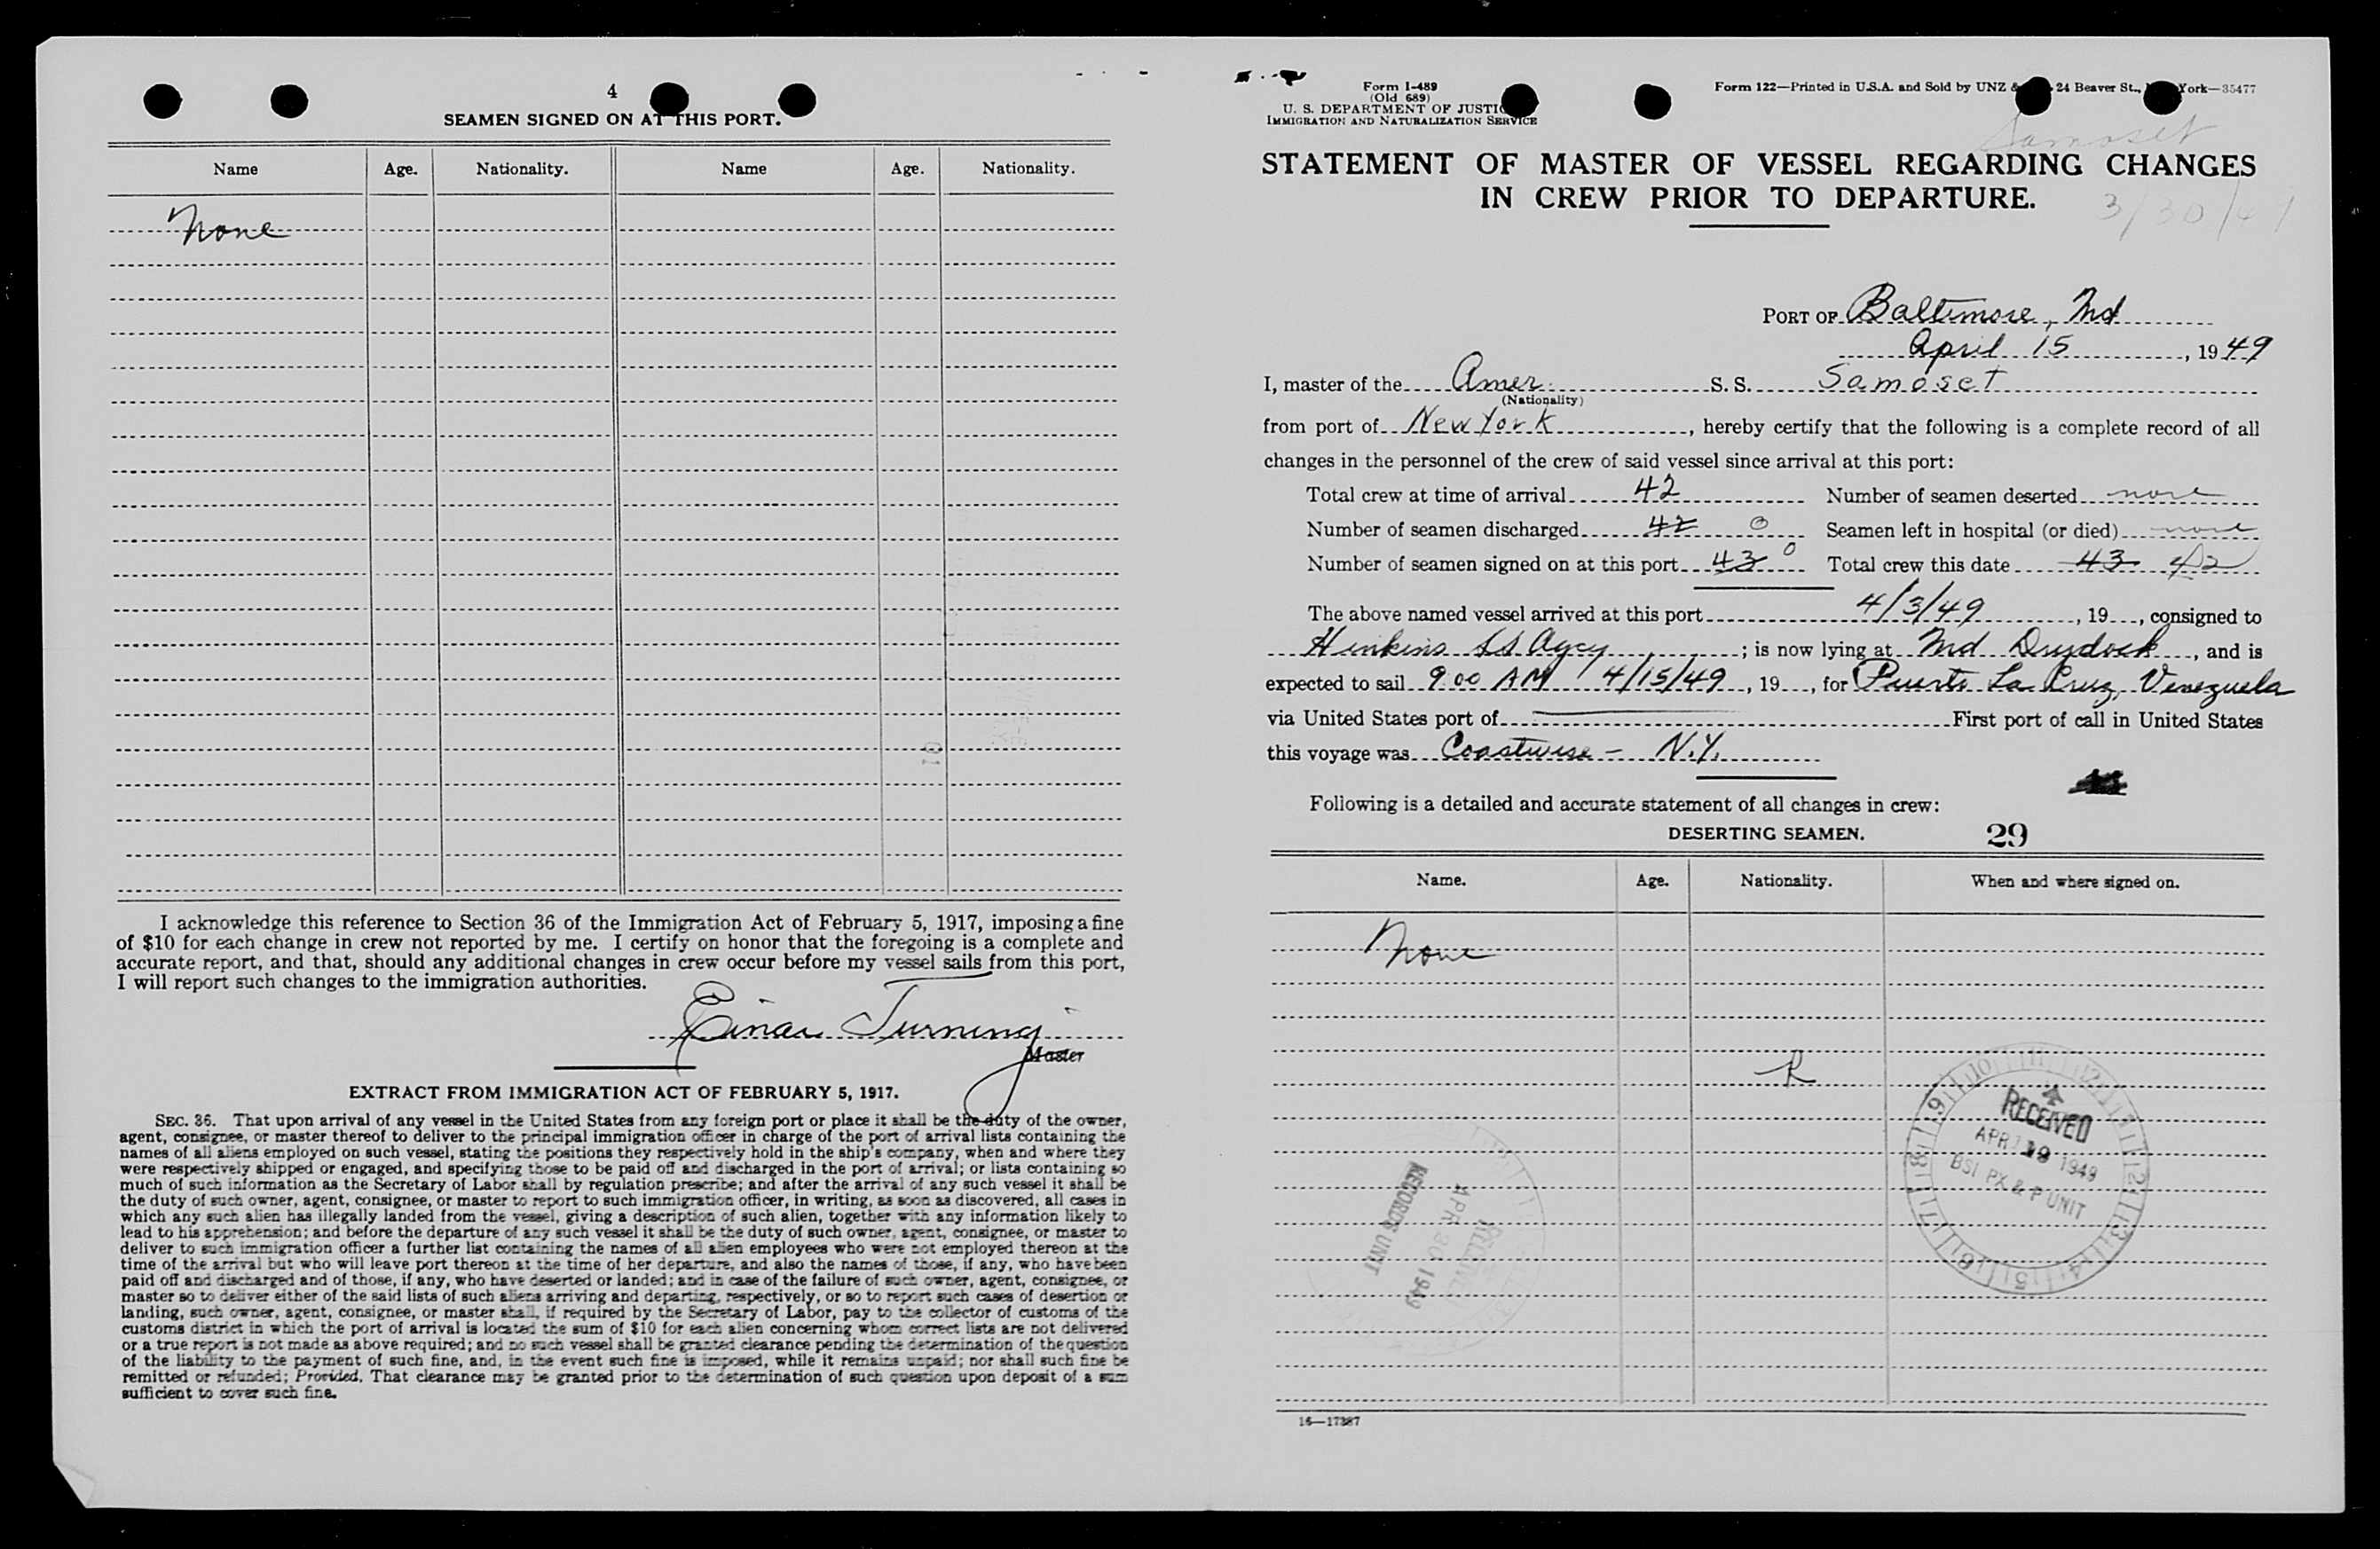 4
SEAMEN SIGNED ON AT THIS PORT.
Name Age. Nationality. Name Age. Nationality.
None
I acknowledge this reference to Section 36 of the Immigration Act of February 5, 1917, imposing a fine
of $10 for each change in crew not reported by me. I certify on honor that the foregoing is a complete and
accurate report, and that, should any additional changes in crew occur before my vessel sails from this port,
I will report such changes to the immigration authorities.
Einar
Master
EXTRACT FROM IMMIGRATION ACT OF FEBRUARY 5, 1917.
SEC. 36. That upon arrival of any vessel in the United States from any foreign port or place it shall be the duty of the owner,
agent, consignee, or master thereof to deliver to the principal immigration officer in charge of the port of arrival lists containing the
names of all aliens employed on such vessel, stating the positions they respectively hold in the ship's company, when and where they
were respectively shipped or engaged, and specifying those to be paid off and discharged in the port of arrival; or lists containing so
much of such information as the Secretary of Labor shall by regulation prescribe; and after the arrival of any such vessel it shall be
the duty of such owner, agent, consignee, or master to report to such immigration officer, in writing, as soon as discovered, all cases in
which any such alien has illegally landed from the vessel, giving a description of such alien, together with any information likely to
lead to his apprehension; and before the departure of any such vessel it shall be the duty of such owner, agent, consignee, or master to
deliver to such immigration officer a further list containing the names of all alien employees who were not employed thereon at the
time of the arrival but who will leave port thereon at the time of her departure, and also the names of those, if any, who have been
paid off and discharged and of those, if any, who have deserted or landed; and in case of the failure of such owner, agent, consignee, or
master so to deliver either of the said lists of such aliens arriving and departing, respectively, or so to report such cases of desertion or
landing, such owner, agent, consignee, or master shall, if required by the Secretary of Labor, pay to the collector of customs of the
customs district in which the port of arrival is located the sum of $10 for each alien concerning whom correct lists are not delivered
or a true report is not made as above required; and no such vessel shall be granted clearance pending the determination of the question
of the liability to the payment of such fine, and, in the event such fine is imposed, while it remains unpaid; nor shall such fine be
remitted or refunded; Provided, That clearance may be granted prior to the determination of such question upon deposit of a sum
sufficient to cover such fine.
Form I-489
(Old 689)
U. S. DEPARTMENT OF JUSTIC
IMMIGRATION AND NATURALIZATION SERVICE
Form 122—Printed in U.S.A. and Sold by UNZ & 24 Beaver St., York—35477
Samoset
STATEMENT OF MASTER OF VESSEL REGARDING CHANGES
IN CREW PRIOR TO DEPARTURE.
PORT OF Baltimore, Md
April 15, 1949
I, master of the Amer. S. S. Samoset
(Nationality)
from port of New York, hereby certify that the following is a complete record of all
changes in the personnel of the crew of said vessel since arrival at this port:
Total crew at time of arrival 42 Number of seamen deserted none
Number of seamen discharged 42 0 Seamen left in hospital (or died) none
Number of seamen signed on at this port 43 0 Total crew this date 43 42
The above named vessel arrived at this port 4/3/49, 19, consigned to
Hinkins SS Agcy; is now lying at Md Drydock, and is
expected to sail 9 00 AM 4/15/49, 19, for Puerto La Cruz, Venezuela
via United States port of First port of call in United States
this voyage was Coastwise - N.Y.
Following is a detailed and accurate statement of all changes in crew:
DESERTING SEAMEN. 29
Name. Age. Nationality. When and where signed on.
None
R
RECEIVED
APR 19 1949
BSI PX & P UNIT
RECEIVED
APR 20 1949
RECORDS UNIT
16—17387